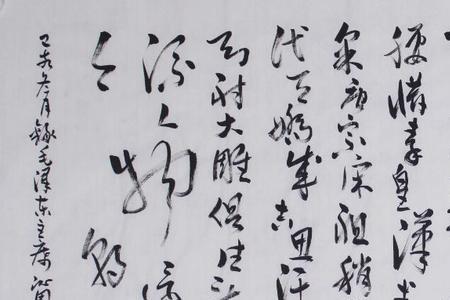 腰惜秦皇漢
采唐宗宋祖稍
代天驕成吉思汗
弓射大雕俱往
流人物
今朝
己亥冬月錄毛澤東主席沁園